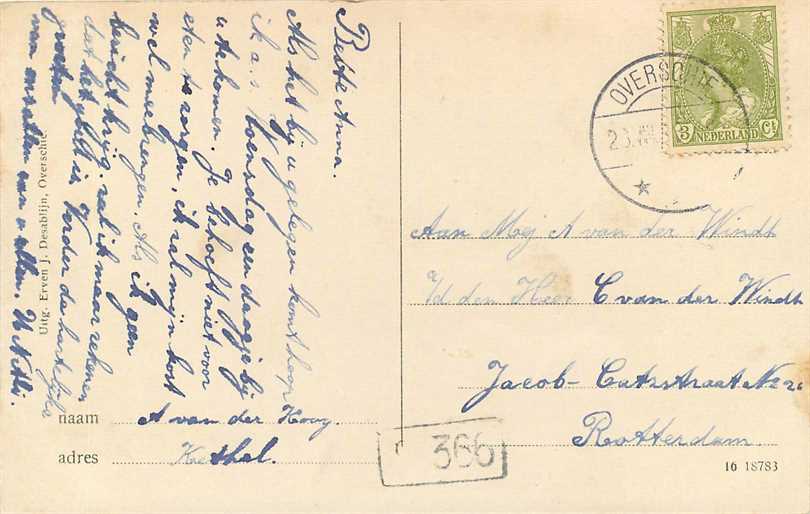 Beste Anna.
Als het bij u gelegen komt hoop
ik a.s. Woensdag een daagje bij
u te komen. Je behoeft niet voor
eten te zorgen, ik zal mijn kost
wel meebrengen. Als ik geen
bericht krijg. zal ik maar rekenen
dat het goed is. Verder de hartelijke
groeten
van ons allen aan u allen.
Uitg. Erven J. Desablijn, Overschie
naam A van der Kooy.
adres Kethel.
OVERSCHIE
NEDERLAND
3 Ct
366
Aan Mej A van der Windt
I/d den Heer C van der Windt
Jacob-Catsstraat No 26
Rotterdam.
16 18783